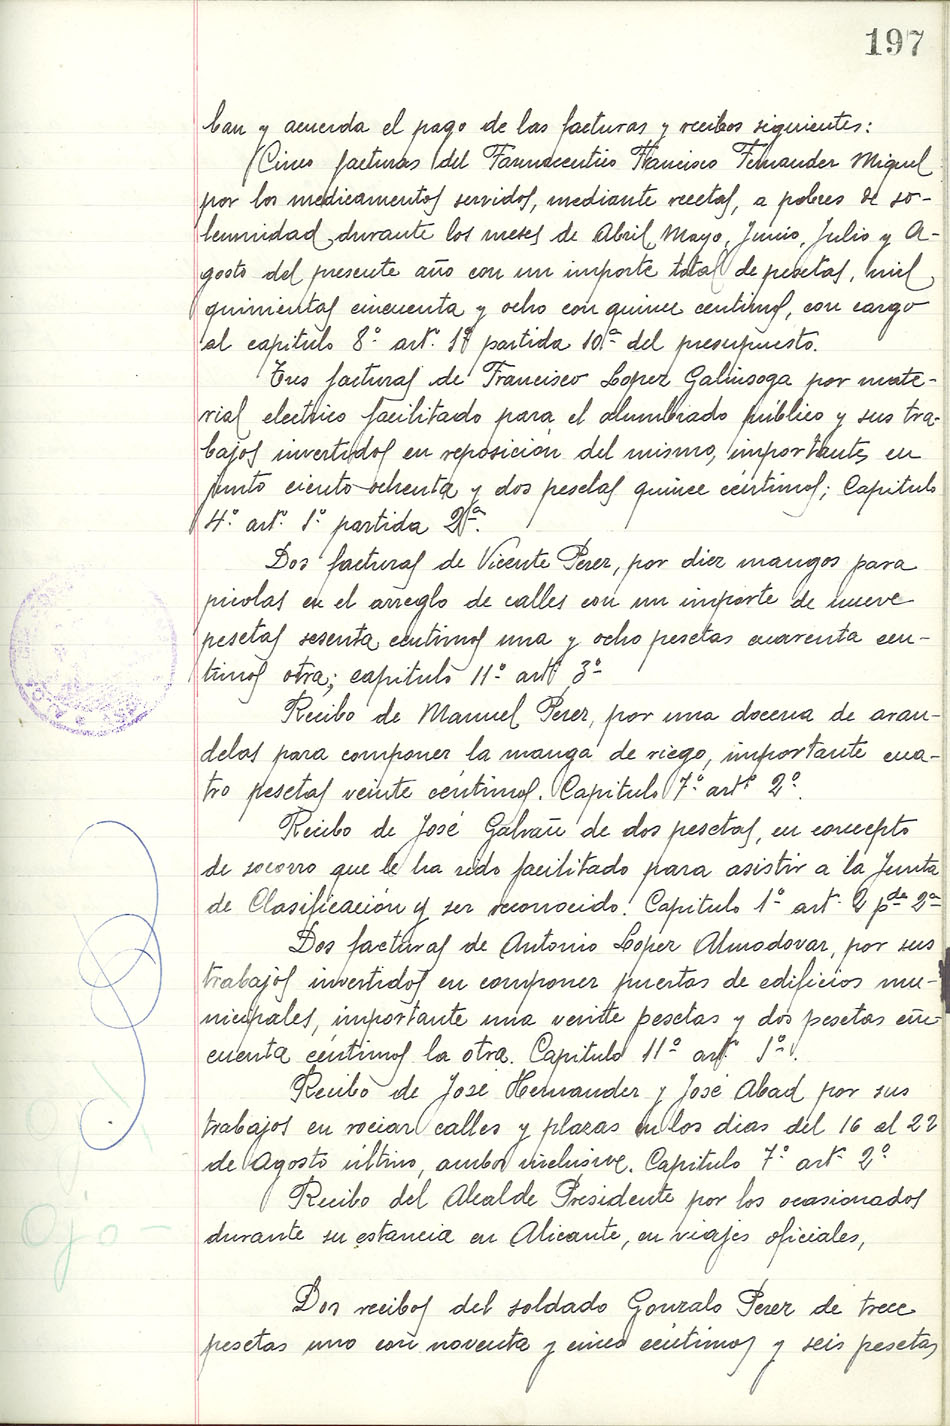 197
ban y acuerda el pago de las facturas y recibos siguientes:
Cinco facturas del Farmaceutico Francisco Fernander Miquel
por los medicamentos servidos, mediante recetas, a pobres de so-
lemnidad durante los meses de Abril, Mayo, Junio, Julio y A-
gosto del presente año con un importe total de pesetas, mil
quinientas cincuenta y ocho con quince centimos, con cargo
al capitulo 8º artº 1º partida 10ª del presupuesto.
Tres facturas de Francisco Loper Galinsoga por mate-
rial electrico facilitado para el alumbrado público y sus tra-
bajos invertidos en reposición del mismo, importantes en
junto ciento ochenta y dos pesetas quince céntimos; Capitulo
4º artº 1º partida 2ª.
Dos facturas de Vicente Perer, por dier mangos para
picolas en el arreglo de calles con un importe de nueve
pesetas sesenta centimos una y ocho pesetas cuarenta cen-
timos otra; capitulo 11º artº 3º
Recibo de Manuel Perer, por una docena de aran-
delas para componer la manga de riego, importante cua-
tro pesetas veinte céntimos. Capitulo 7º artº 2º.
Recibo de José Galvañ de dos pesetas, en concepto
de socorro que le ha sido facilitado para asistir a la Junta
de Clasificación y ser reconocido. Capitulo 1º artº 2 pda 2ª
Dos facturas de Antonio Loper Almodovar, por sus
trabajos invertidos en componer puertas de edificios mu-
nicipales, importante una veinte pesetas y dos pesetas cin-
cuenta céntimos la otra. Capitulo 11º artº 1º.
Recibo de José Hernander y José Abad por sus
trabajos en rociar calles y plazas en los dias del 16 al 22
de Agosto último, ambos inclusive. Capitulo 7º artº 2º
Recibo del Alcalde Presidente por los ocasionados
durante su estancia en Alicante, en viajes oficiales,
Ojo-
Dos recibos del soldado Gonzalo Perer de trece
pesetas uno con noventa y cinco céntimos y seis pesetas